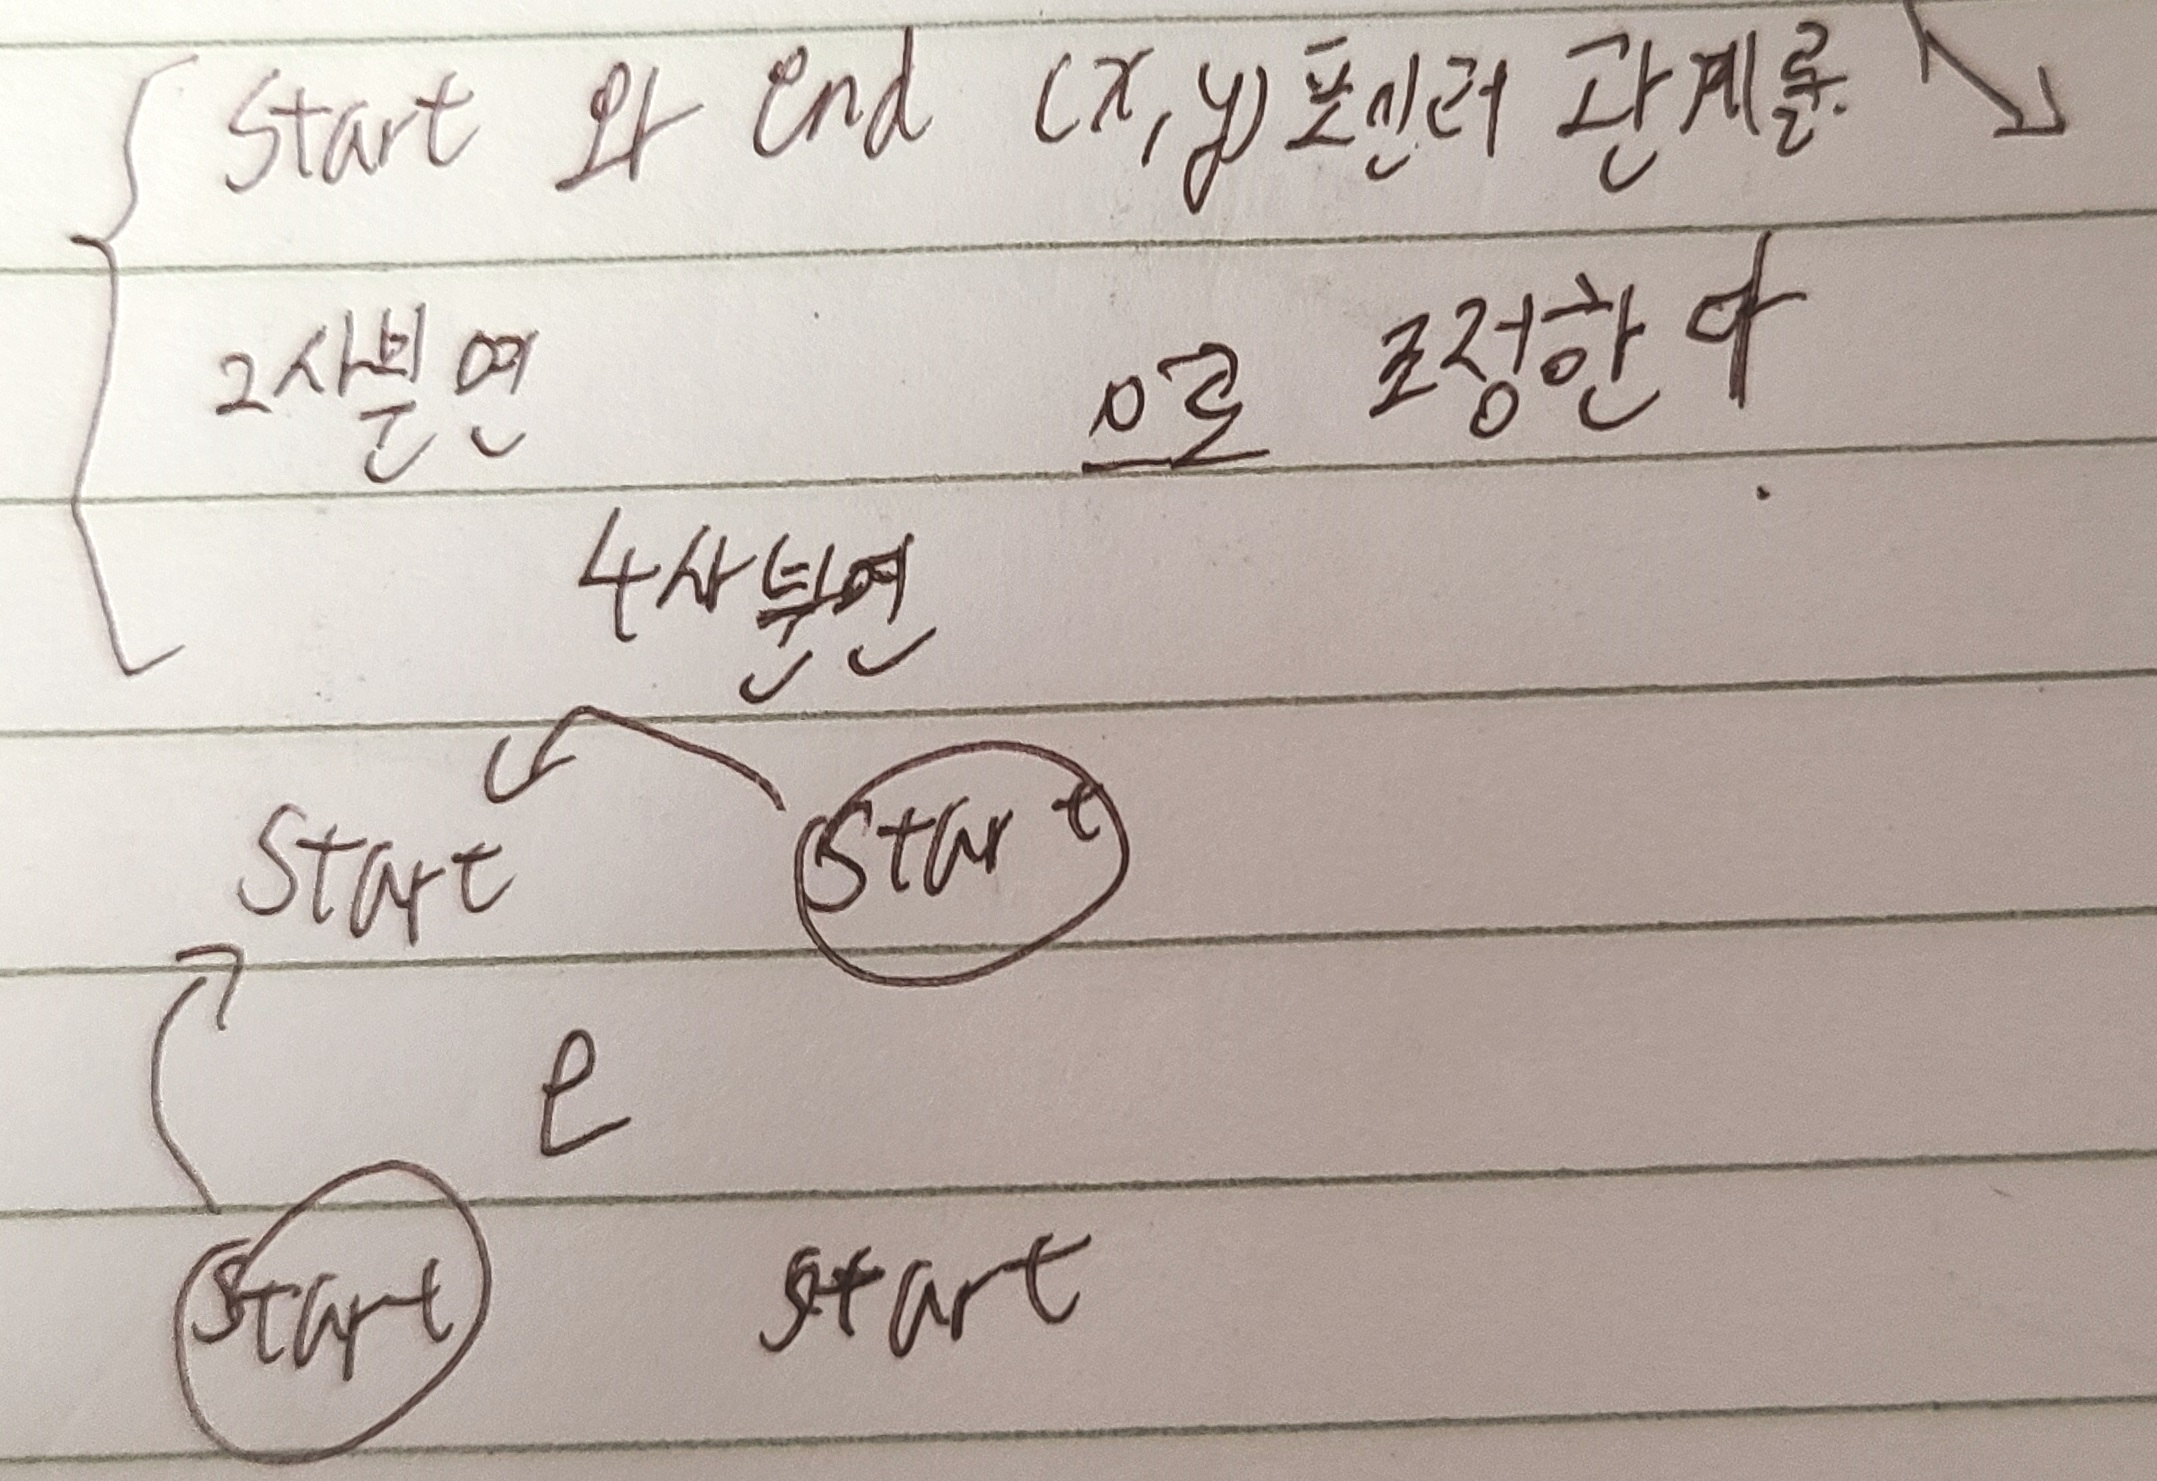 Start 와 end (x, y) 포인터 관계를
2사분면 으로 조정한다
4사분면
Start Start
e
Start start